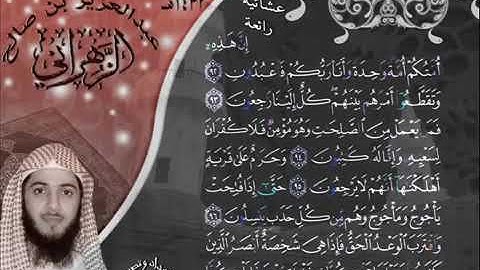 عشائية
رائعة
عبدالعزيز بن صالح
الزهراني
إِنَّ هَٰذِهِۦٓ
أُمَّتُكُمْ أُمَّةً وَٰحِدَةً وَأَنَا۠ رَبُّكُمْ فَٱعْبُدُونِ ٩٢
وَتَقَطَّعُوٓا۟ أَمْرَهُم بَيْنَهُمْ كُلٌّ إِلَيْنَا رَٰجِعُونَ ٩٣
فَمَن يَعْمَلْ مِنَ ٱلصَّٰلِحَٰتِ وَهُوَ مُؤْمِنٌ فَلَا كُفْرَانَ
لِسَعْيِهِۦ وَإِنَّا لَهُۥ كَٰتِبُونَ ٩٤ وَحَرَٰمٌ عَلَىٰ قَرْيَةٍ
أَهْلَكْنَٰهَآ أَنَّهُمْ لَا يَرْجِعُونَ ٩٥ حَتَّىٰٓ إِذَا فُتِحَتْ
يَأْجُوجُ وَمَأْجُوجُ وَهُم مِّن كُلِّ حَدَبٍ يَنسِلُونَ ٩٦
وَٱقْتَرَبَ ٱلْوَعْدُ ٱلْحَقُّ فَإِذَا هِىَ شَٰخِصَةٌ أَبْصَٰرُ ٱلَّذِينَ